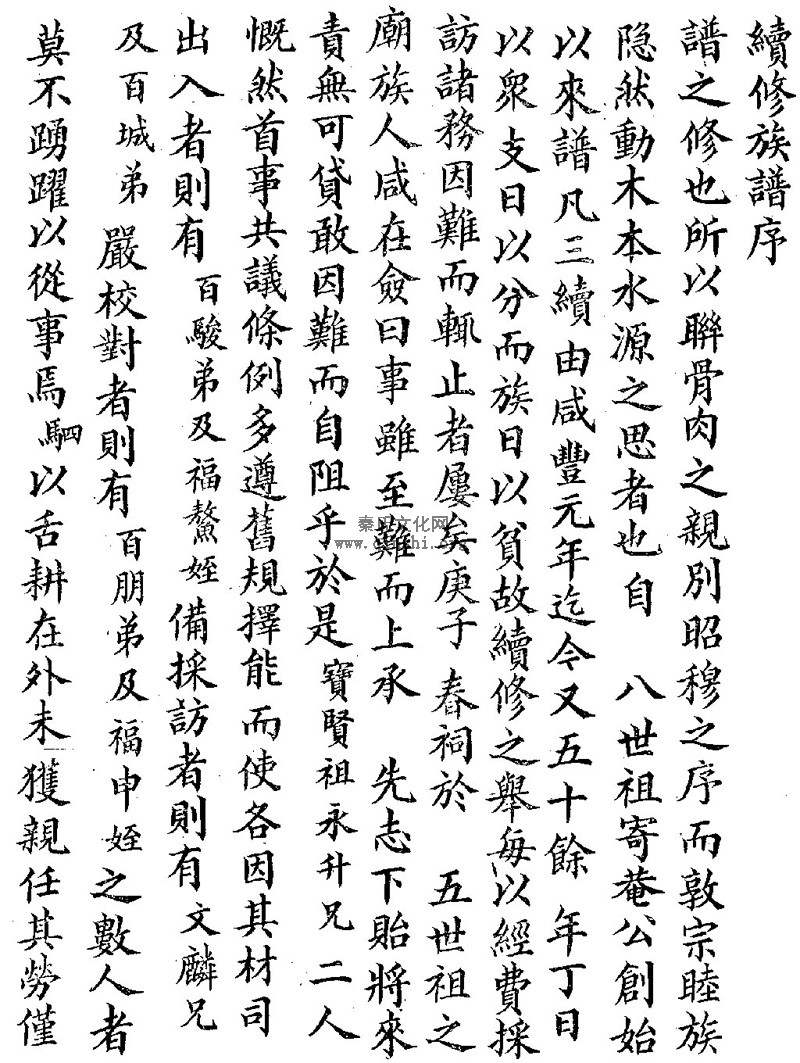 續修族譜序
譜之修也所以聯骨肉之親別昭穆之序而敦宗睦族
隐然動木本水源之思者也自 八世祖寄菴公創始
以來譜凡三續由咸豐元年迄今又五十餘 年丁日
以衆支日以分而族日以貧故續修之舉每以經費採
訪諸務因難而輒止者屢矣庚子 春祠於 五世祖之
廟族人咸在僉曰事雖至難而上承 先志下貽將來
責無可貸敢因難而自阻乎於是 寶賢祖永升兄 二人
慨然首事共議條例多遵舊規擇能而使各因其材司
出入者則有 百駿弟及福鰲姪 備採訪者則有 文麟兄
及百城弟 嚴校對者則有 百朋弟及福申姪 之數人者
莫不踴躍以從事焉 駟 以舌耕在外未獲親任其勞僅
秦氏文化网